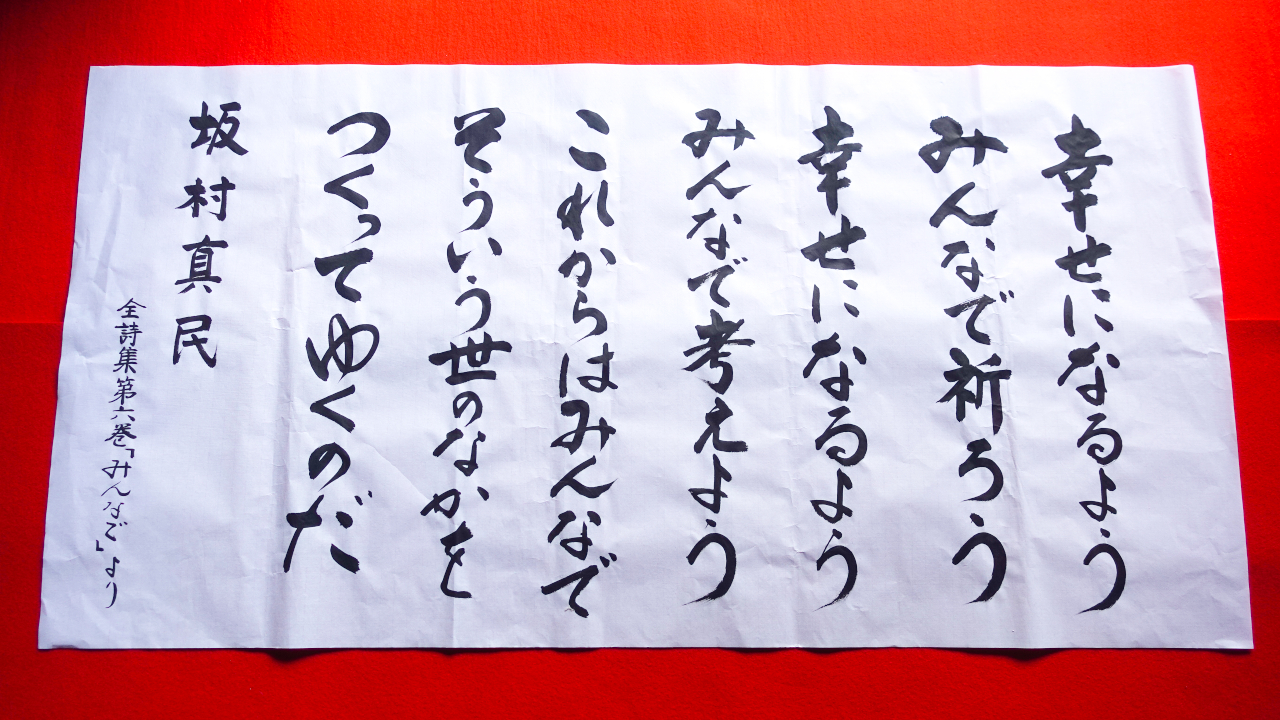 幸せになるよう
みんなで祈ろう
幸せになるよう
みんなで考えよう
これからはみんなで
そういう世のなかを
つくってゆくのだ
坂村真民
全詩集第六巻「みんなで」より